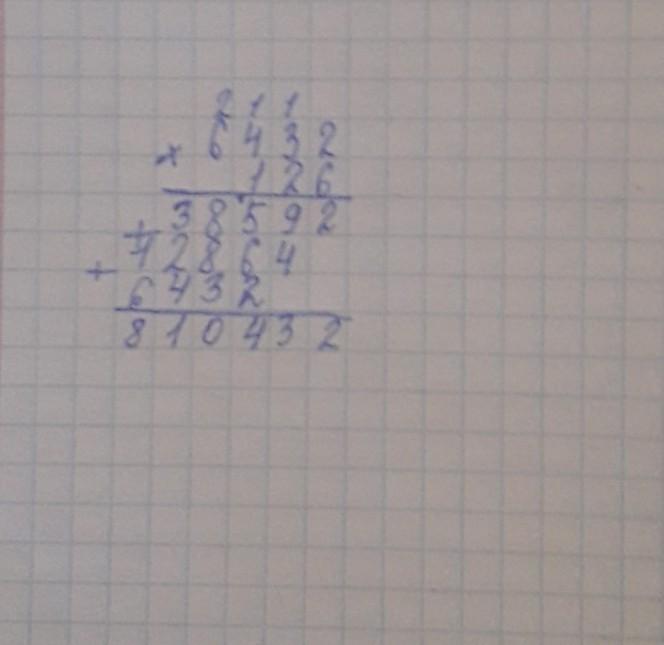 2 1 1
× 6 4 3 2
1 2 6
+ 3 8 5 9 2
+ 1 2 8 6 4
6 4 3 2
8 1 0 4 3 2